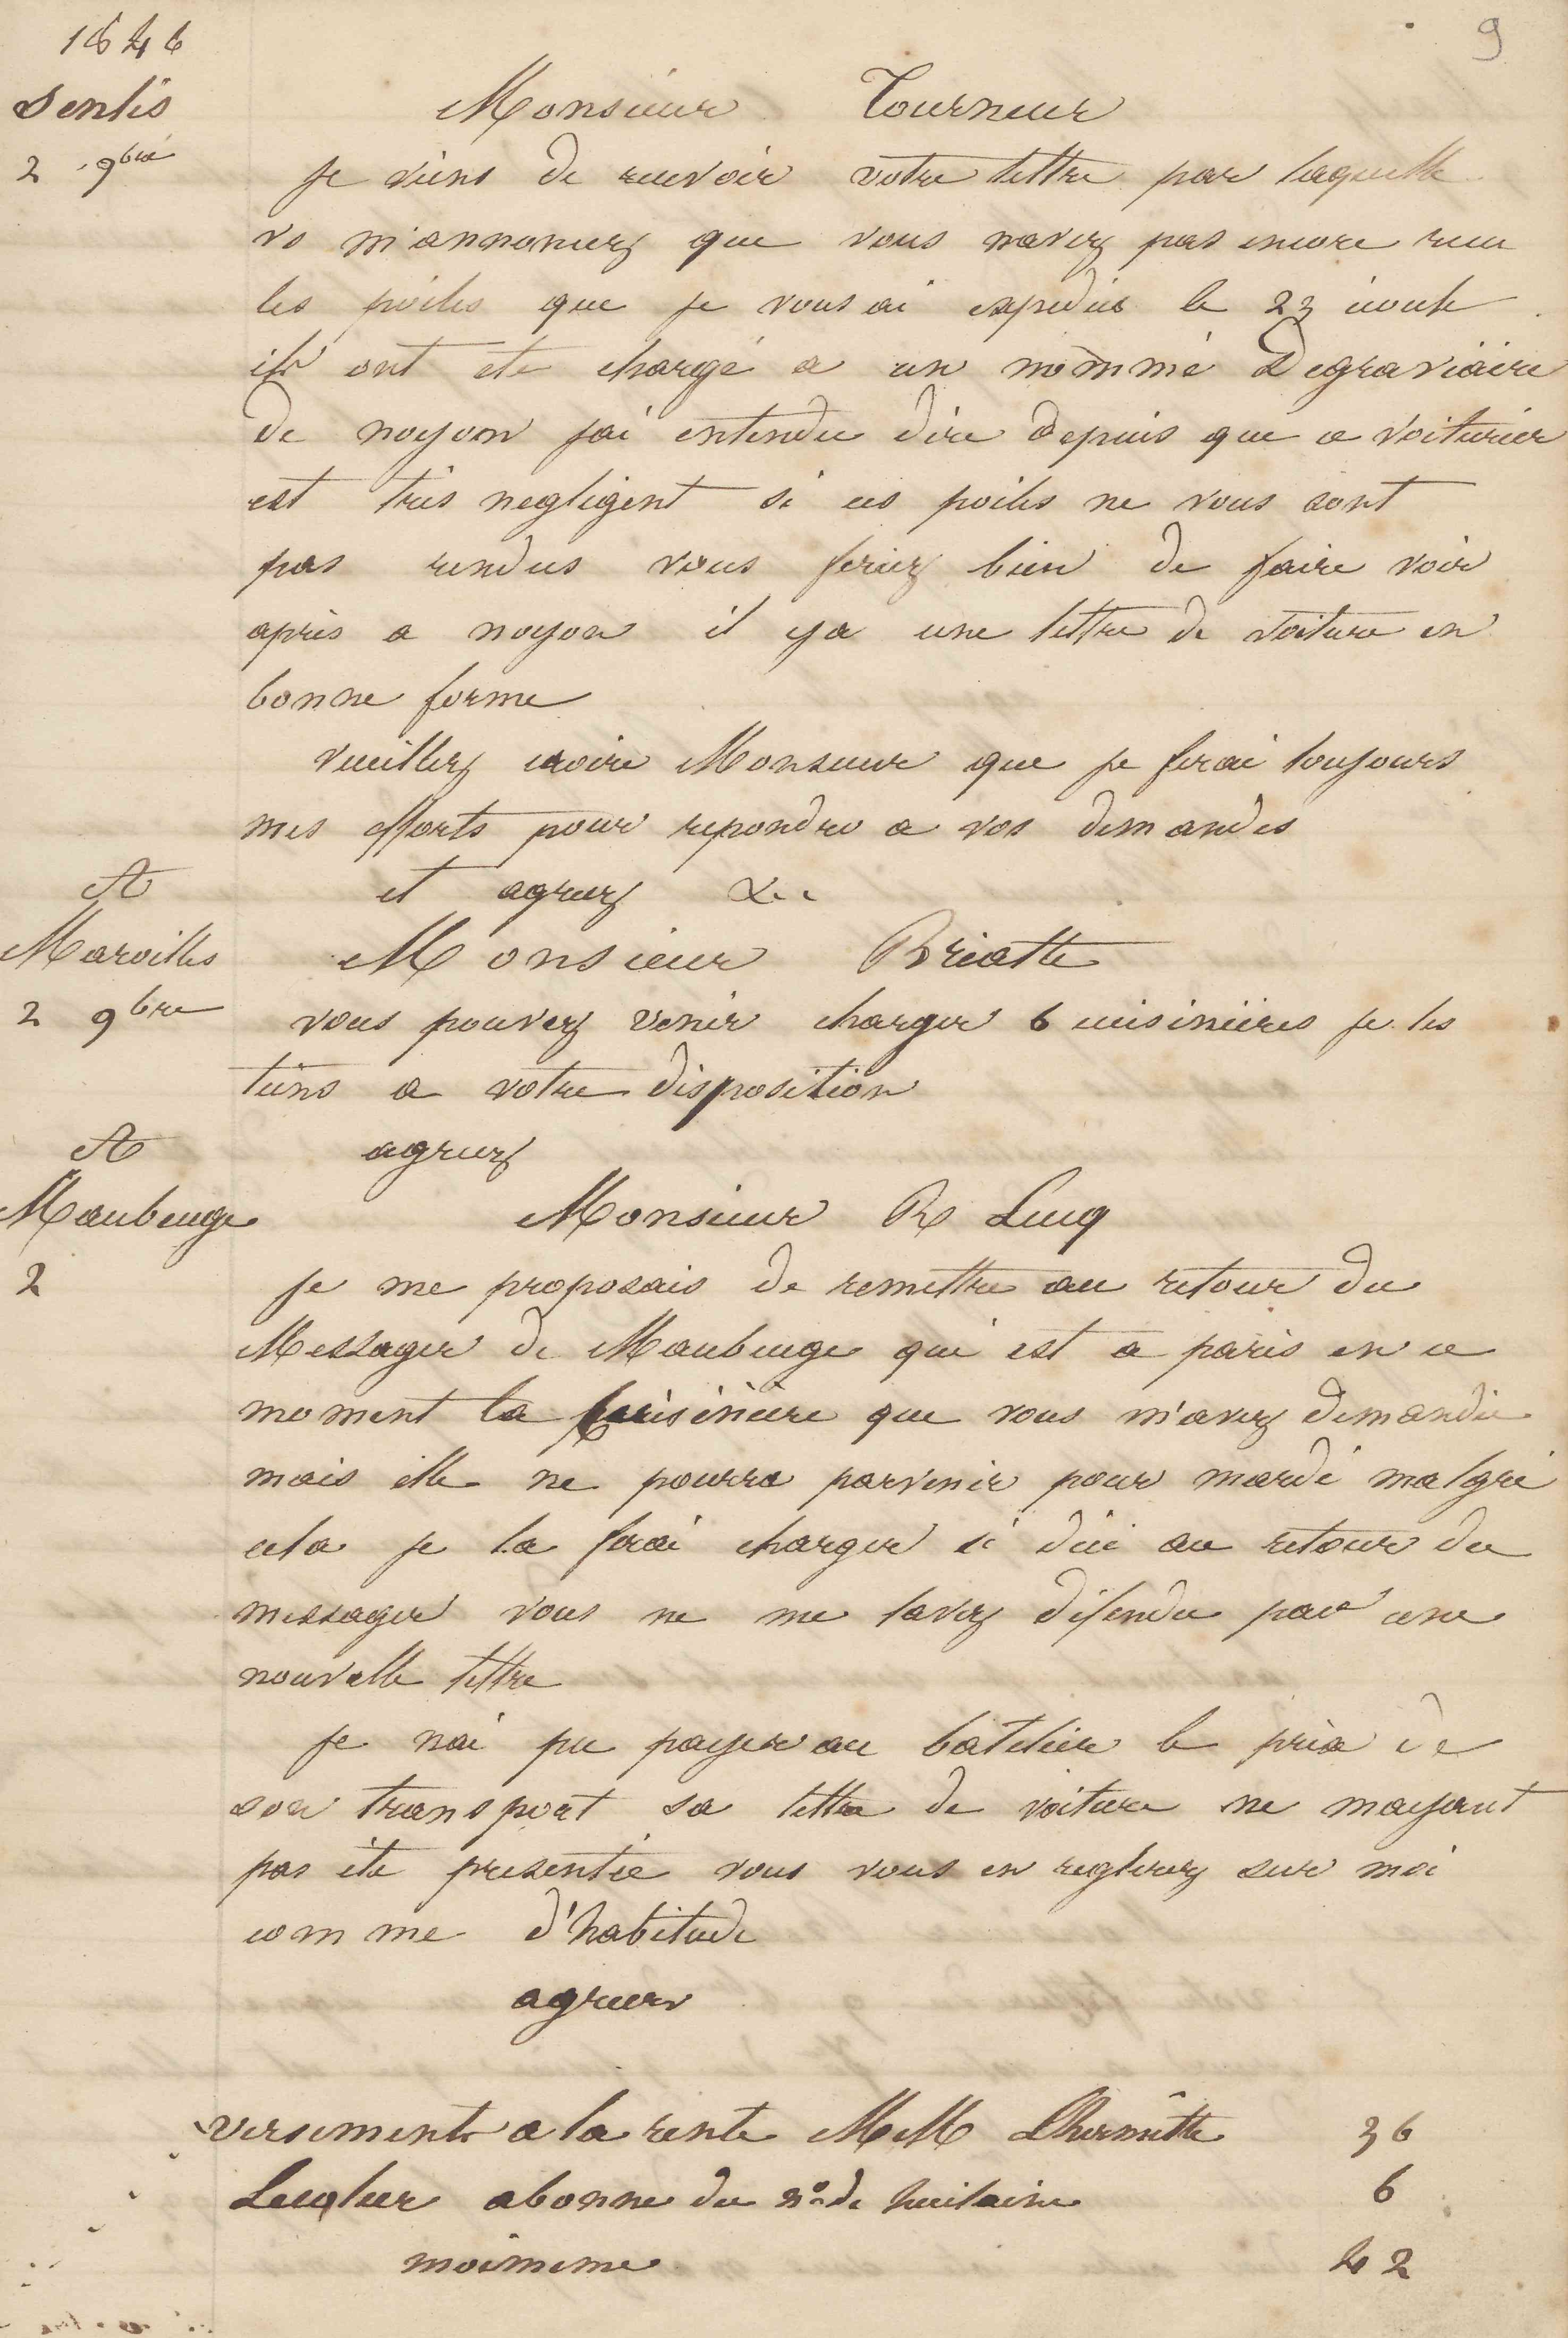 9
1846
Senlis
2 9bre
Monsieur Tourneur
je viens de recevoir votre lettre par laquelle
vs m'annoncez que vous navez pas encore recu
les poiles que je vous ai expediés le 23 aout
ils ont ete chargé a un nommé Degraviaire
de noyon jai entendu dire depuis que ce voiturier
est très negligent si ces poiles ne vous sont
pas rendus vous feriez bien de faire voir
après a noyon il ya une lettre de voiture en
bonne forme
veuillez croire Monsieur que je ferai toujours
mes efforts pour repondre a vos demandes
et agreez &c
A
Maroilles
2 9bre
Monsieur Briatte
vous pouvez venir charger 6 cuisinières je les
tiens a votre disposition
agreez
A
Maubeuge
2
Monsieur R Lucq
je me proposais de remettre au retour du
Messager de Maubeuge qui est a paris en ce
moment la Cuisinière que vous m'avez demandée
mais elle ne pourra parvenir pour mardi malgré
cela je la ferai charger si dici au retour du
messager vous ne me lavez défendu par une
nouvelle lettre
je nai pu payer au batelier le prix de
son transport sa lettre de voiture ne mayant
pas été presentée vous vous en reglerez sur moi
comme d'habitude
agreez
versements a la rente MM Lhermitte 36
abonne du no de huitaine 6
moimeme 42